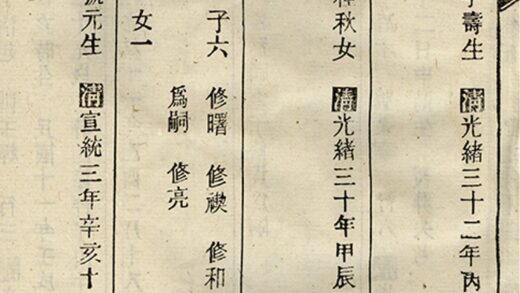 壽生 清光緒三十二年丙
秋女 清光緒三十年甲辰
子六 修曙 修禊 修和
為嗣 修亮
女一
元生 清宣統三年辛亥十